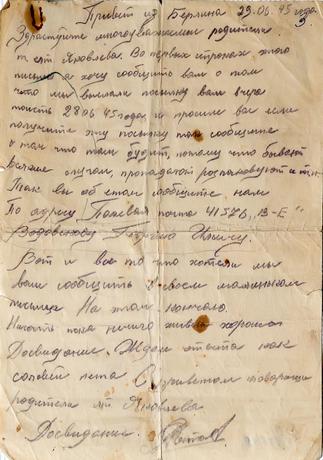 Привет из Берлина 29.06.45 года
Здраствуйте многоуважаемые родители
т. лт. Яковлева. Во первых строках этого
письма я хочу сообщить вам о том
что мы выслали посылку вам вчера
тоисть 28 06 45 года, и просим вас если
получите эту посылку то сообщите
о том что там будит, потому что бывают
всякие случаи, пропадают
Так вы об етом сообщите нам
По адресу Полевая почта 41576 „В-Е"
Вот и все то что хотели мы
вам сообщить в своем маленьком
письме На этом кончаю.
пока ничего живем хорошо
Досвидание. Ждем ответа как
соловей лета С приветом товарищи
родители лт. Яковлева
Досвидание.